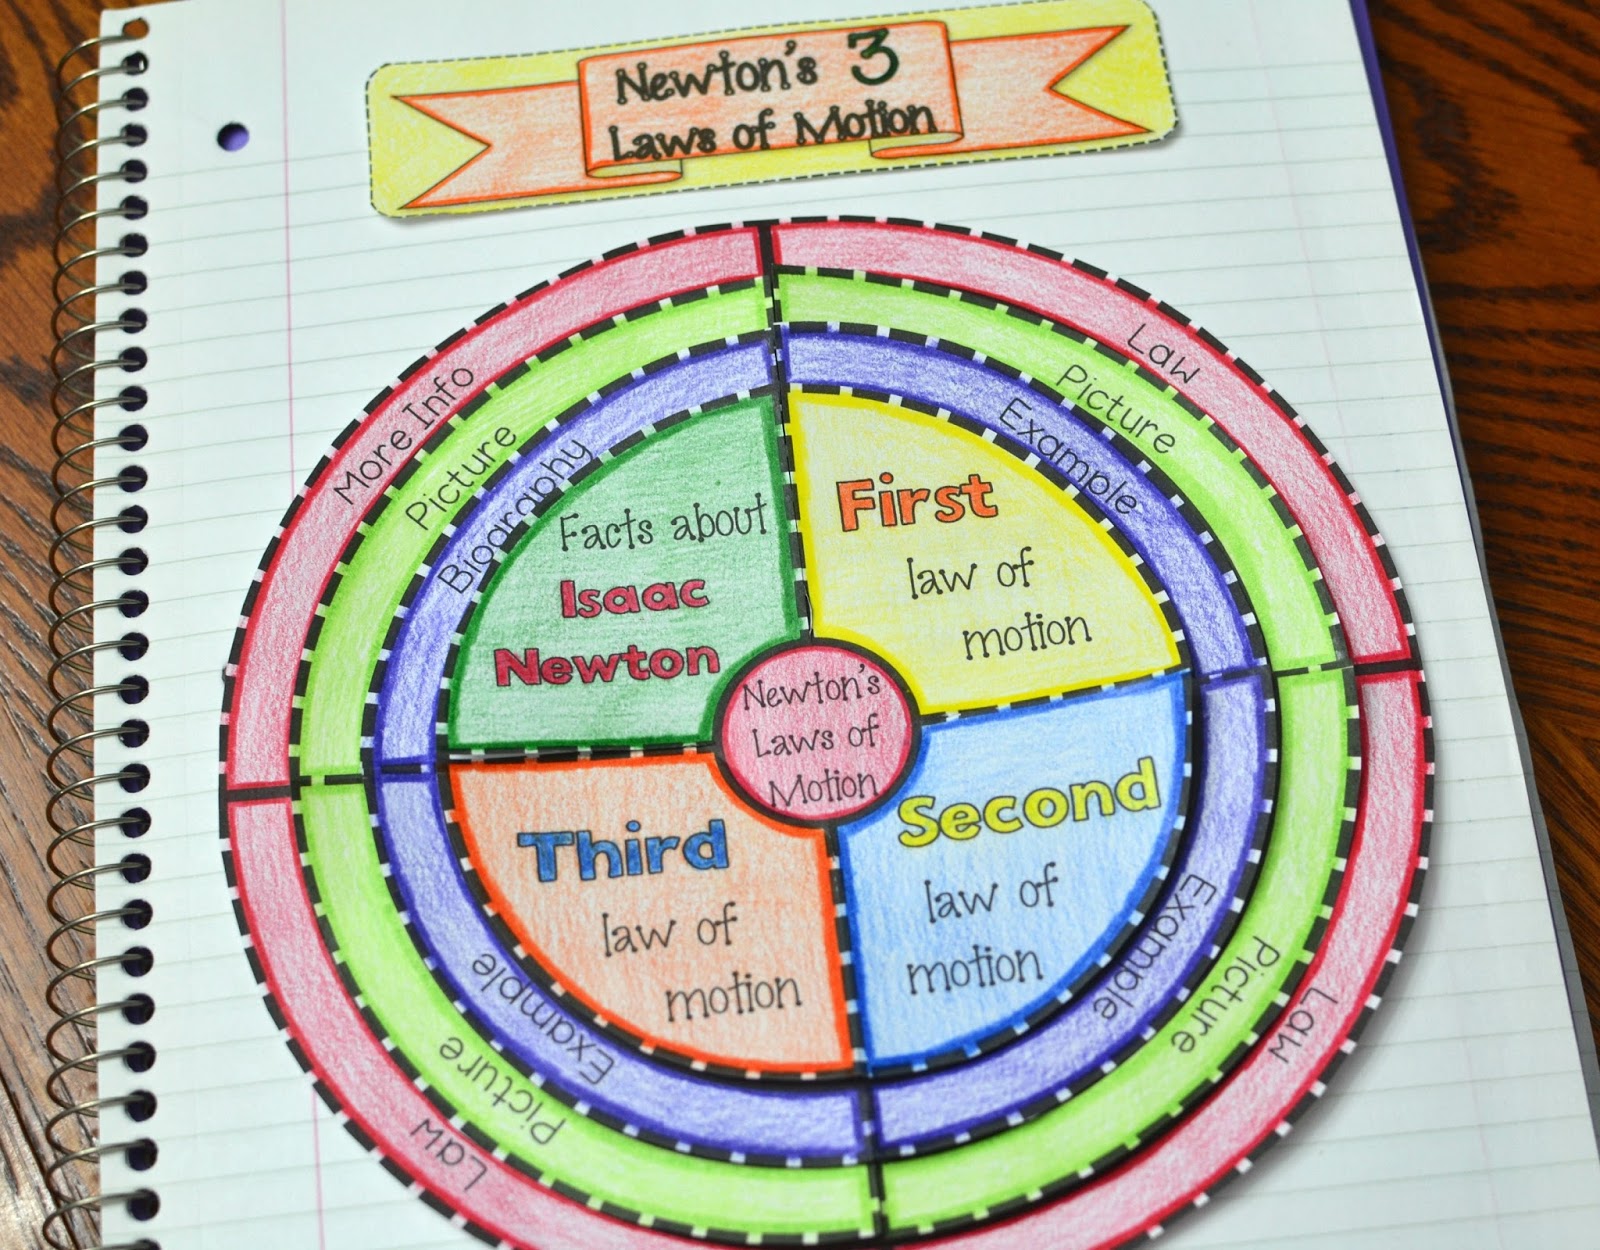 Newton's 3
Laws of Motion
More Info
Picture
Biography
Facts about
Isaac
Newton
Law
Picture
Example
First
law of
motion
Newton's
Laws of
Motion
Third
law of
motion
Example
Picture
Law
Second
law of
motion
Example
Picture
Law